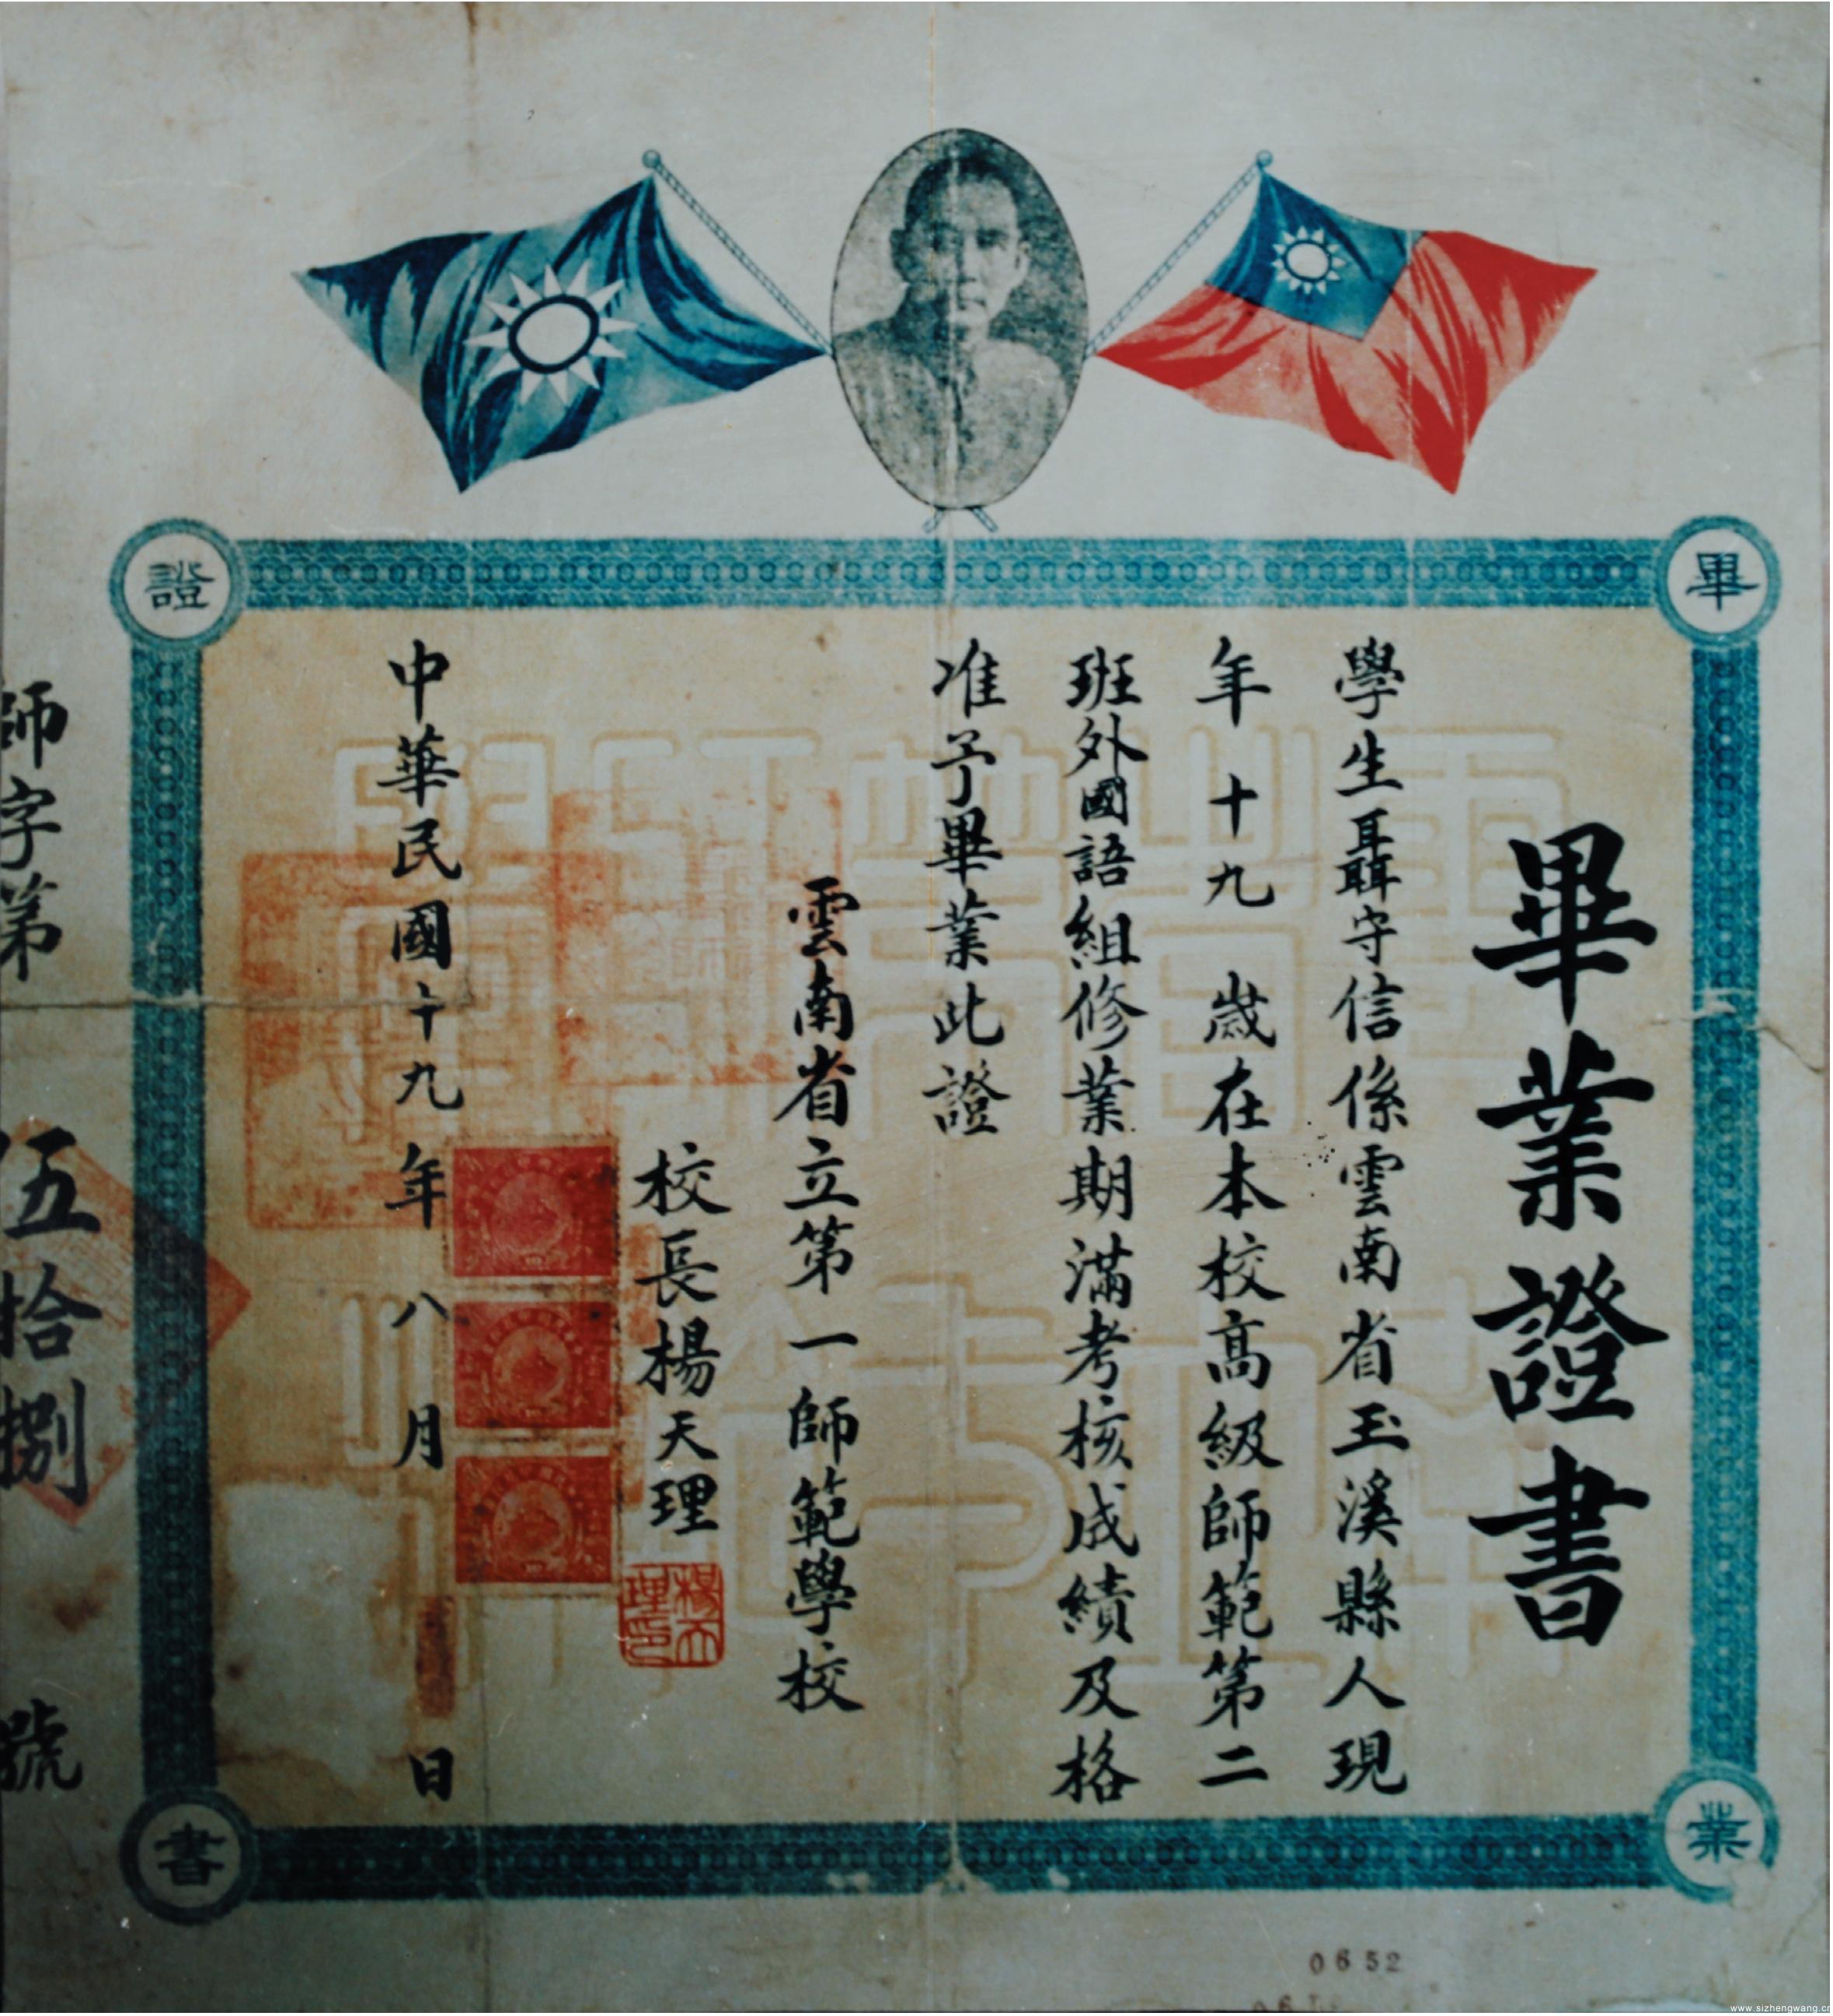 畢業證書
學生聶守信係雲南省玉溪縣人現
年十九歲在本校高級師範第二
班外國語組修業期滿考核成績及格
准予畢業此證
雲南省立第一師範學校
校長楊天理
楊天理印
中華民國十九年八月 日
師字第 伍拾捌 號
畢
業
證
書
0652
www.sizhengwang.cn